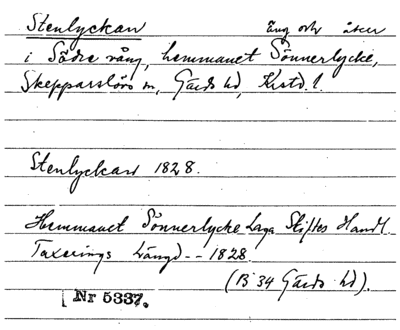 Stenlyckan Äng och åker
i Södre vång, hemmanet Sönnerlycke,
Skepparslövs sn, Gärds hd, Krstd. l.
Stenlyckan 1828.
Hemmanet Sönnerlycke Laga Skiftes Handl.
Taxerings Längd -- 1828
(B 34 Gärds hd).
Nr 5337.